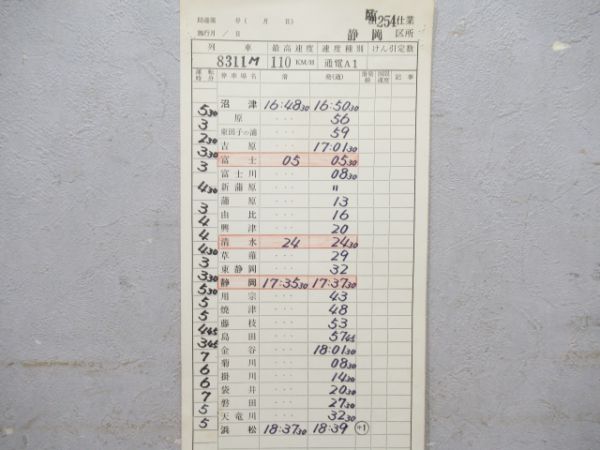 局達第 号( 月 日) 臨254仕業
施行月 / 日 静岡 区所
列車 最高速度 速度種別 けん引定数
8311M 110 KM/H 通電A1
運転時分 停車場名 着 発(通) 着発線 制限速度 記事
沼津 16:48 30 16:50 30
5 30 原 ・・・ 56
3 東田子の浦 ・・・ 59
2 30 吉原 ・・・ 17:01 30
3 30 富士 05 05 30
3 富士川 ・・・ 08 30
新蒲原 ・・・ 〃
4 30 蒲原 ・・・ 13
3 由比 ・・・ 16
4 興津 ・・・ 20
4 清水 24 24 30
4 30 草薙 ・・・ 29
3 東静岡 ・・・ 32
3 30 静岡 17:35 30 17:37 30
5 30 用宗 ・・・ 43
5 焼津 ・・・ 48
5 藤枝 ・・・ 53
4 45 島田 ・・・ 57 45
3 45 金谷 ・・・ 18:01 30
7 菊川 ・・・ 08 30
6 掛川 ・・・ 14 30
6 袋井 ・・・ 20 30
7 磐田 ・・・ 27 30
5 天竜川 ・・・ 32 30
5 浜松 18:37 30 18:39 +1